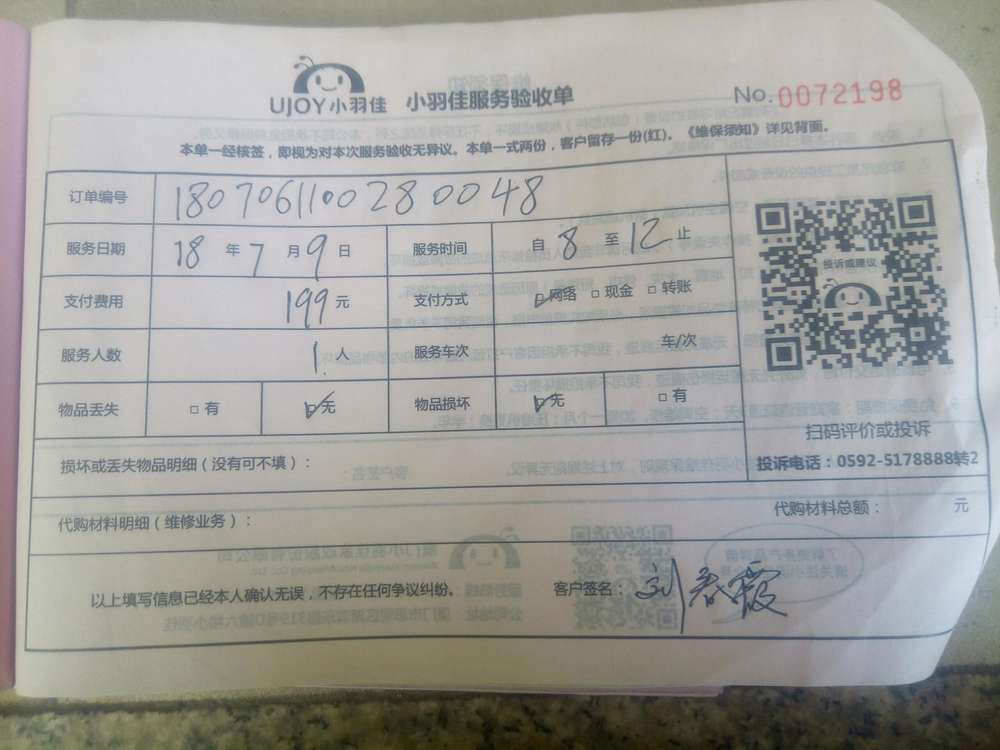 UJOY小羽佳 小羽佳服务验收单 No.0072198
本单一经核签，即视为对本次服务验收无异议。本单一式两份，客户留存一份(红)。《维保须知》详见背面。
订单编号 180706110028 0048
服务日期 18 年 7 月 9 日 服务时间 自 8 至 12 止
支付费用 199 元 支付方式 网络 现金 转账
服务人数 1 人 服务车次 车/次
物品丢失 有 无 物品损坏 无 有
投诉或建议
扫码评价或投诉
投诉电话：0592-5178888转2
损坏或丢失物品明细（没有可不填）：
代购材料明细（维修业务）： 代购材料总额： 元
以上填写信息已经本人确认无误，不存在任何争议纠纷。 客户签名：刘春霞